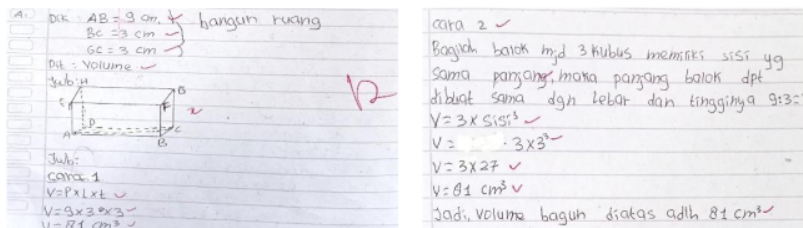 A.
Dik : AB = 9 cm
BC = 3 cm
GC = 3 cm
bangun ruang
Dit : Volume
Jwb:
H
G
E
F
D
C
A
B
12
Jwb:
cara 1
V=P×L×t
V=9×3×3
V=81 cm³
cara 2
Bagilah balok mjd 3 kubus memiliki sisi yg
sama panjang, maka panjang balok dpt
dibuat sama dgn lebar dan tingginya 9:3=
V=3×Sisi³
V= 3×3³
V=3×27
V=81 cm³
Jadi, volume bagun diatas adlh 81 cm³